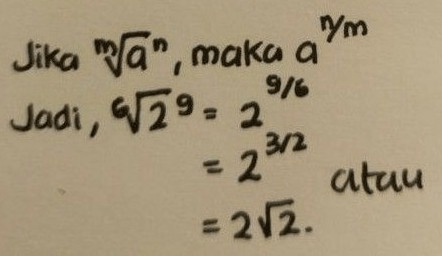 Jika ᵐ√aⁿ, maka a^n/m
Jadi, ⁶√2⁹ = 2^9/6
= 2^3/2 atau
= 2√2.